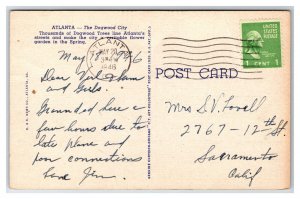 ATLANTA — The Dogwood City
Thousands of Dogwood Trees line Atlanta's
streets and make the city a veritable flower
garden in the Spring.
ATLANTA
MAY
1946
UNITED STATES
POSTAGE
1 CENT 1
May 1946
Dear and
Girls.
Grounded here a
few hours due to
late plane and
poor connections
Love Jim
POST CARD
Mrs S.V. Lovell
2767-12th St.
Sacramento
Calif